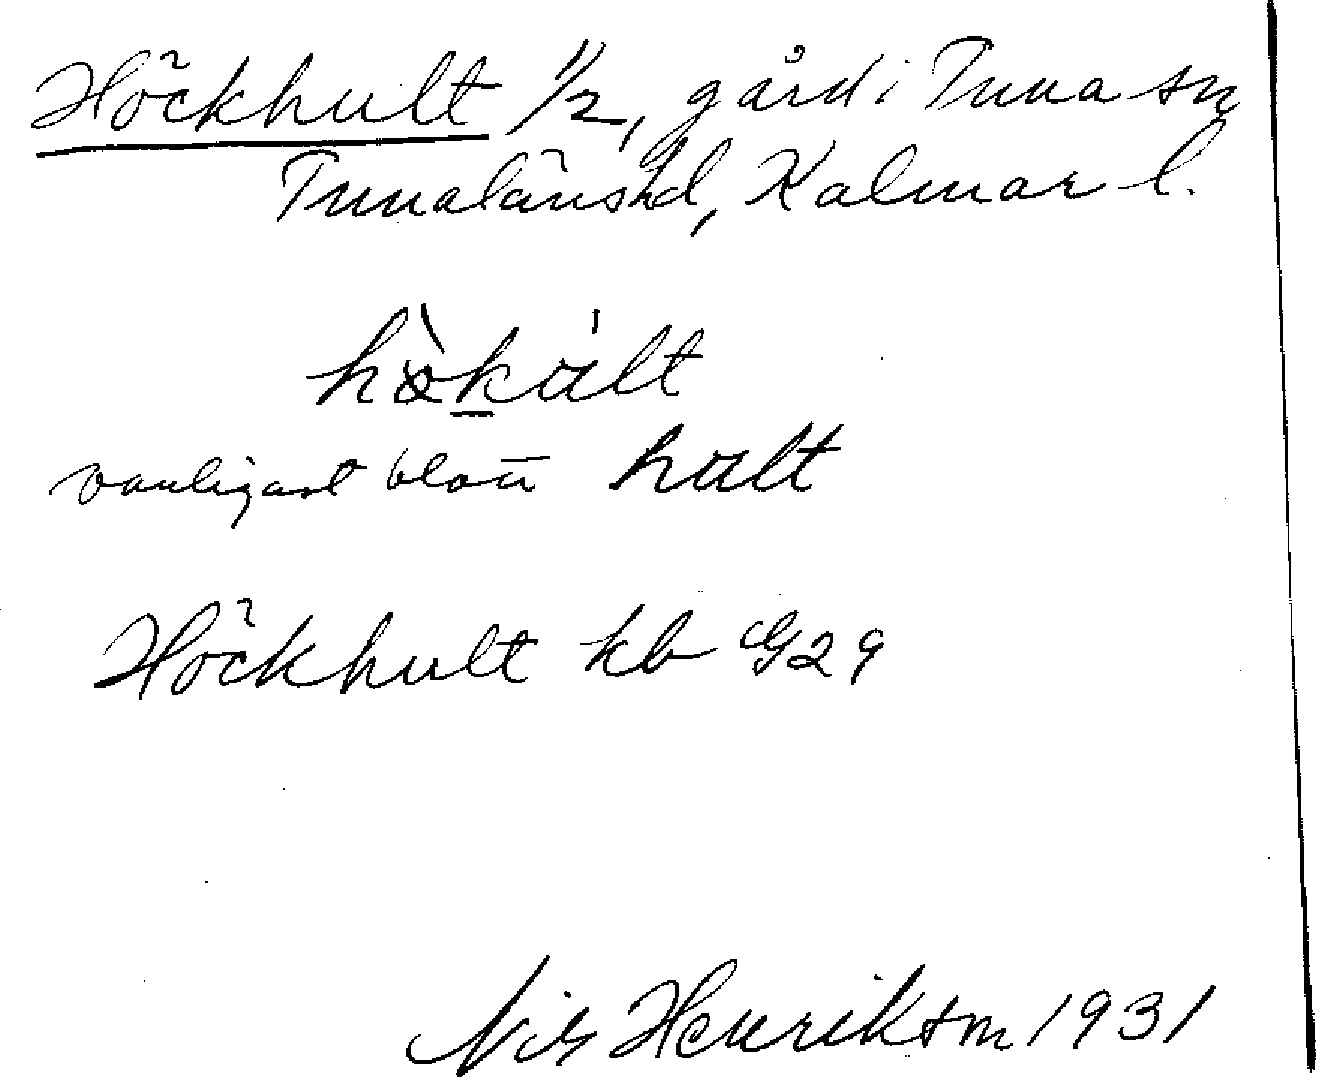 Höckhult 1/2, gård i Tuna sn
Tunaläns hd, Kalmar l.
hø̀kált
vanligast blott hult
Höckhult kb G29
Nils Henrikson 1931